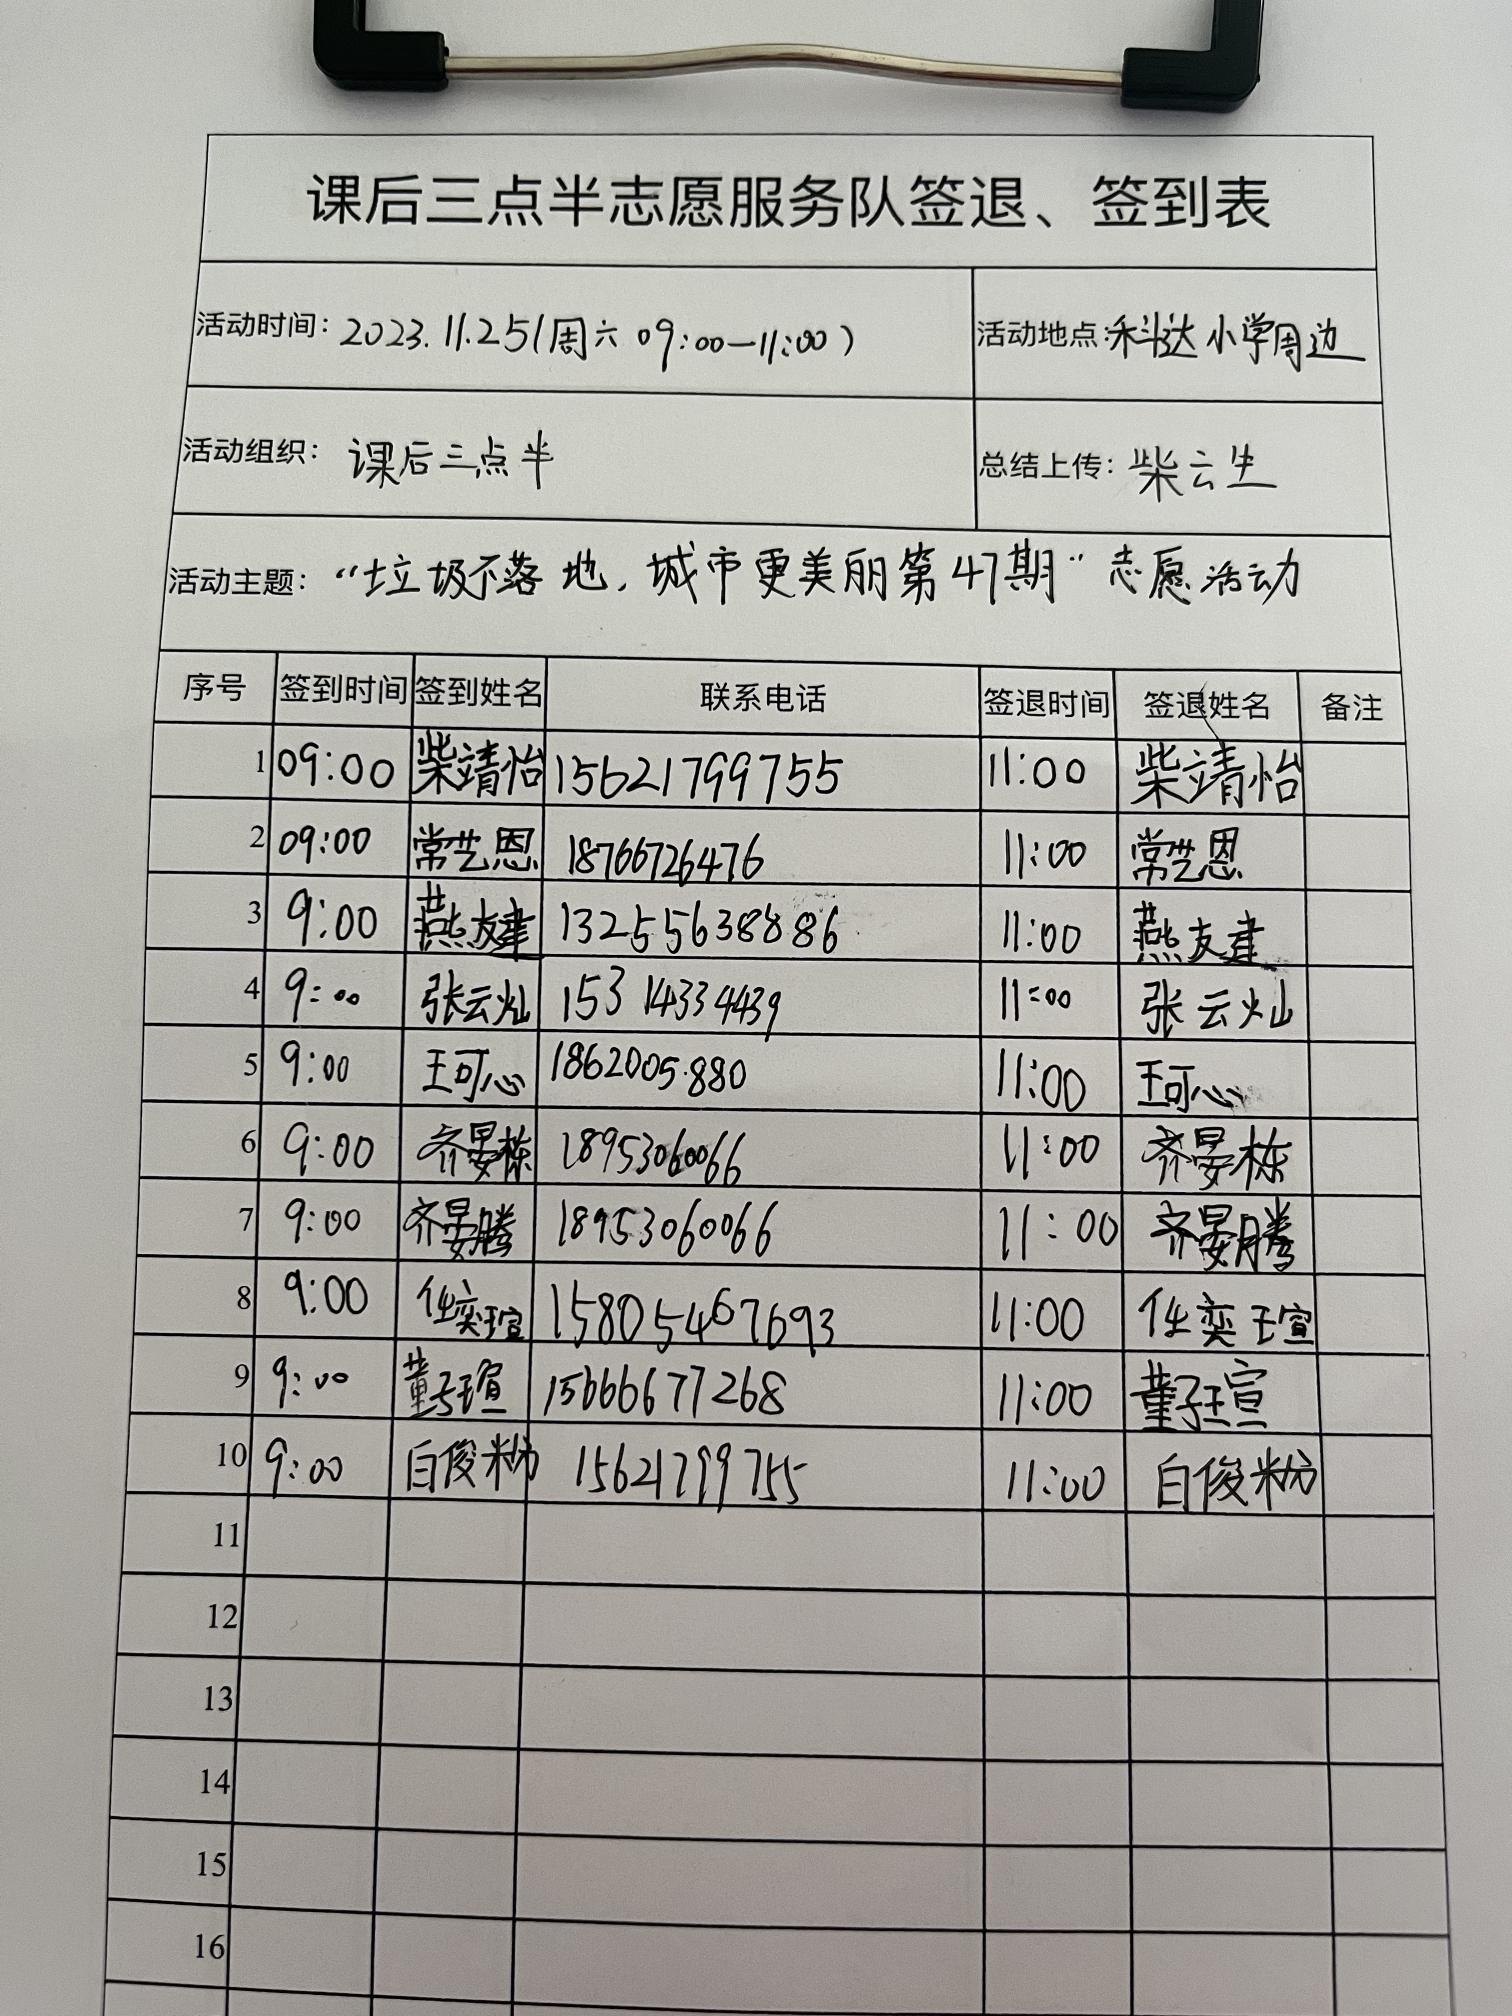 课后三点半志愿服务队签退、签到表
活动时间：2023.11.25(周六 09:00—11:00) 活动地点：科达小学周边
活动组织：课后三点半 总结上传：柴云生
活动主题：“垃圾不落地，城市更美丽第47期”志愿活动
序号 签到时间 签到姓名 联系电话 签退时间 签退姓名 备注
1 09:00 柴靖怡 15621799755 11:00 柴靖怡
2 09:00 常艺恩 18766726476 11:00 常艺恩
3 9:00 燕友建 13255638886 11:00 燕友建
4 9:00 张云灿 15314334439 11:00 张云灿
5 9:00 王可心 1862005.880 11:00 王可心
6 9:00 齐晏栋 18953060066 11:00 齐晏栋
7 9:00 齐晏腾 18953060066 11:00 齐晏腾
8 9:00 任奕瑄 15805467693 11:00 任奕瑄
9 9:00 董子瑄 15666677268 11:00 董子瑄
10 9:00 白俊粉 15621799755 11:00 白俊粉
11
12
13
14
15
16